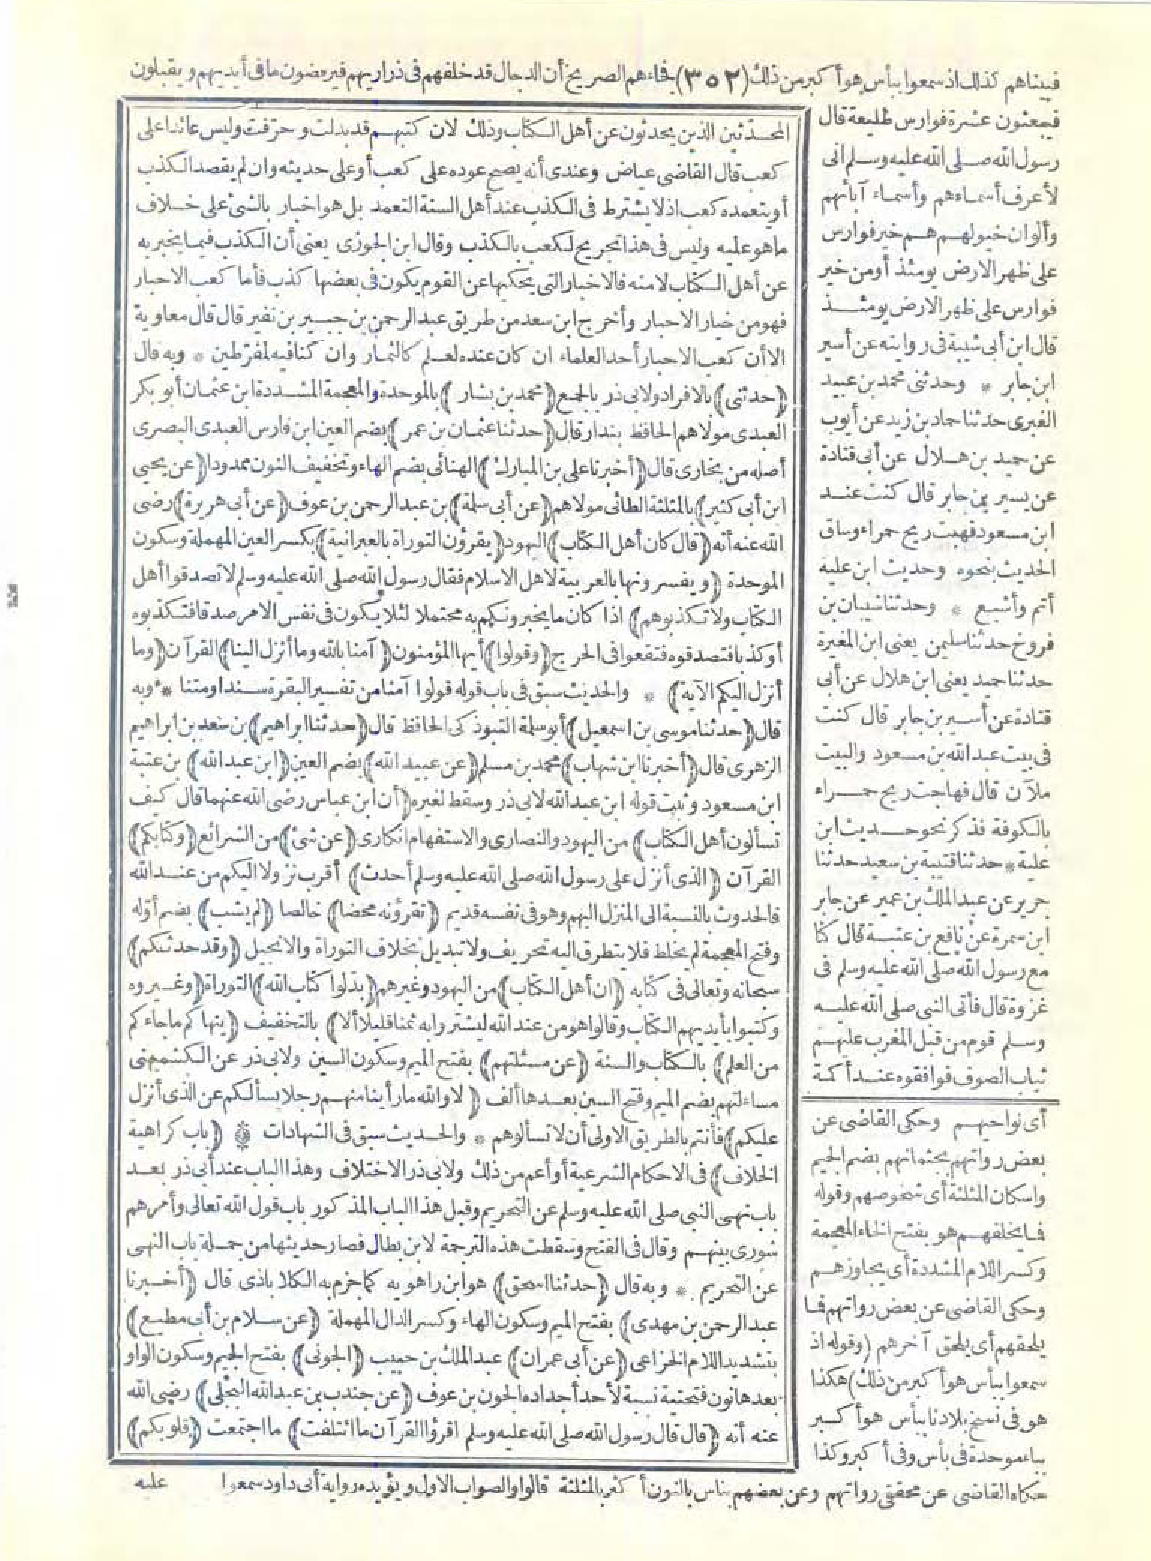 فبيناهم كذلك اذ سمعوا ببأس هو أكبر من ذلك (٣٥٢) فجاءهم الصريخ أن الدجال قد خلفهم فى ذراريهم فيرفضون ما فى أيديهم ويقبلون
فيبعثون عشرة فوارس طليعة قال
رسول الله صلى الله عليه وسلم انى
لأعرف أسماءهم وأسماء آبائهم
وألوان خيولهم هم خير فوارس
على ظهر الارض يومئذ أو من خير
فوارس على ظهر الارض يومئذ
قال ابن أبى شيبة فى روايته عن أسير
ابن جابر * وحدثنى محمد بن عبيد
الغبرى حدثنا حماد بن زيد عن أيوب
عن حميد بن هلال عن أبى قتادة
عن يسير بن جابر قال كنت عند
ابن مسعود فهبت ريح حمراء وساق
الحديث بنحوه وحديث ابن علية
أتم وأشبع * وحدثنا شيبان بن
فروخ حدثنا سليمن يعنى ابن المغيرة
حدثنا حميد يعنى ابن هلال عن أبى
قتادة عن أسير بن جابر قال كنت
فى بيت عبد الله بن مسعود والبيت
ملآن قال فهاجت ريح حمراء
بالكوفة فذكر نحو حديث ابن
علية * حدثنا قتيبة بن سعيد حدثنا
جرير عن عبد الملك بن عمير عن جابر
ابن سمرة عن نافع بن عتبة قال كنا
مع رسول الله صلى الله عليه وسلم فى
غزوة قال فأتى النبى صلى الله عليه
وسلم قوم من قبل المغرب عليهم
ثياب الصوف فوافقوه عند أكمة
أى نواحيهم وحكى القاضى عن
بعض رواتهم بجثمانهم بضم الجيم
واسكان المثلثة أى شخوصهم وقوله
فما يخلفهم هو بفتح الخاء المعجمة
وكسر اللام المشددة أى يجاوزهم
وحكى القاضى عن بعض رواتهم فما
يلحقهم أى يلحق آخرهم (وقوله اذ
سمعوا ببأس هو أكبر من ذلك) هكذا
هو فى نسخ بلادنا ببأس هو أكبر
بباء موحدة فى بأس وفى أكبر وكذا
حكاه القاضى عن محققى رواتهم وعن بعضهم بناس بالنون أكثر بالمثلثة قالوا والصواب الاول ويؤيده رواية أبى داود سمعوا عليه
المحدّثين الذين يحدثون عن أهل الكتاب وذلك لان كتبهم قد بدلت وحرّفت وليس عائدا على
كعب قال القاضى عياض وعندى أنه يصح عوده على كعب أو على حديثه وان لم يقصد الكذب
أو يتعمده كعب اذ لا يشترط فى الكذب عند أهل السنة التعمد بل هو اخبار بالشئ على خلاف
ما هو عليه وليس فى هذا تجريح لكعب بالكذب وقال ابن الجوزى يعنى أن الكذب فيما يخبر به
عن أهل الكتاب لا منه فالاخبار التى يحكيها عن القوم يكون فى بعضها كذب فأما كعب الاحبار
فهو من خيار الاحبار وأخرج ابن سعد من طريق عبد الرحمن بن جبير بن نفير قال قال معاوية
الا أن كعب الاحبار أحد العلماء ان كان عنده لعلم كالثمار وان كنا فيه لمفرّطين * وبه قال
(حدثنى) بالافراد ولابى ذر بالجمع (محمد بن بشار) بالموحدة والمعجمة المشددة ابن عثمان أبو بكر
العبدى مولاهم الحافظ بندار قال (حدثنا عثمان بن عمر) بضم العين ابن فارس العبدى البصرى
أصله من بخارى قال (أخبرنا على بن المبارك) الهنائى بضم الهاء وتخفيف النون ممدودا (عن يحيى
ابن أبى كثير) بالمثلثة الطائى مولاهم (عن أبى سلمة) بن عبد الرحمن بن عوف (عن أبى هريرة) رضى
الله عنه أنه (قال كان أهل الكتاب) اليهود (يقرؤن التوراة بالعبرانية) بكسر العين المهملة وسكون
الموحدة (ويفسرونها بالعربية لاهل الاسلام فقال رسول الله صلى الله عليه وسلم لا تصدقوا أهل
الكتاب ولا تكذبوهم) اذا كان ما يخبرونكم به محتملا لئلا يكون فى نفس الامر صدقا فتكذبوه
أو كذبا فتصدقوه فتقعوا فى الحرج (وقولوا) أيها المؤمنون (آمنا بالله وما أنزل الينا) القرآن (وما
أنزل اليكم الآية) * والحديث سبق فى باب قوله قولوا آمنا من تفسير البقرة سندا ومتنا * وبه
قال (حدثنا موسى بن اسمعيل) أبو سلمة التبوذكى الحافظ قال (حدثنا ابراهيم) بن سعد بن ابراهيم
الزهرى قال (أخبرنا ابن شهاب) محمد بن مسلم (عن عبيد الله) بضم العين (ابن عبد الله) بن عتبة
ابن مسعود وثبت قوله ابن عبد الله لابى ذر وسقط لغيره (أن ابن عباس رضى الله عنهما قال كيف
تسألون أهل الكتاب) من اليهود والنصارى والاستفهام انكارى (عن شئ) من الشرائع (وكتابكم)
القرآن (الذى أنزل على رسول الله صلى الله عليه وسلم أحدث) أقرب نزولا اليكم من عند الله
فالحدوث بالنسبة الى المنزل اليهم وهو فى نفسه قديم (تقرؤنه محضا) خالصا (لم يشب) بضم أوّله
وفتح المعجمة لم يخلط فلا يتطرق اليه تحريف ولا تبديل بخلاف التوراة والانجيل (وقد حدثكم)
سبحانه وتعالى فى كتابه (ان أهل الكتاب) من اليهود وغيرهم (بدّلوا كتاب الله) التوراة (وغيروه
وكتبوا بأيديهم الكتاب وقالوا هو من عند الله ليشتروا به ثمنا قليلا ألا) بالتخفيف (ينهاكم ما جاءكم
من العلم) بالكتاب والسنة (عن مسئلتهم) بفتح الميم وسكون السين ولابى ذر عن الكشميهنى
مساءلتهم بضم الميم وفتح السين بعدها ألف (لا والله ما رأينا منهم رجلا يسألكم عن الذى أنزل
عليكم) فأنتم بالطريق الاولى أن لا تسألوهم * والحديث سبق فى الشهادات * (باب كراهية
الخلاف) فى الاحكام الشرعية أو أعم من ذلك ولابى ذر الاختلاف وهذا الباب عند أبى ذر بعد
باب نهى النبى صلى الله عليه وسلم عن التحريم وقبل هذا الباب المذكور باب قول الله تعالى وأمرهم
شورى بينهم وقال فى الفتح وسقطت هذه الترجمة لابن بطال فصار حديثها من جملة باب النهى
عن التحريم * وبه قال (حدثنا اسحق) هو ابن راهويه كما جزم به الكلاباذى قال (أخبرنا
عبد الرحمن بن مهدى) بفتح الميم وسكون الهاء وكسر الدال المهملة (عن سلام بن أبى مطيع)
بتشديد اللام الخزاعى (عن أبى عمران) عبد الملك بن حبيب (الجونى) بفتح الجيم وسكون الواو
بعدها نون فتحتية نسبة لأحد أجداده الجون بن عوف (عن جندب بن عبد الله البجلى) رضى الله
عنه أنه (قال قال رسول الله صلى الله عليه وسلم اقرؤا القرآن ما ائتلفت) ما اجتمعت (قلوبكم)